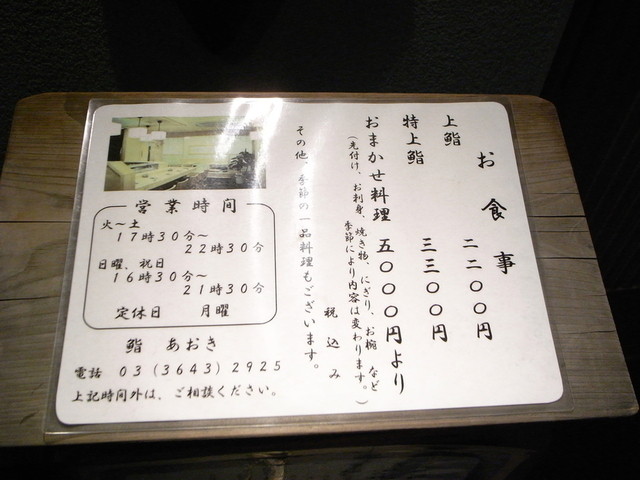 お食事
上鮨 二二〇〇円
特上鮨 三三〇〇円
おまかせ料理 五〇〇〇円より
(先付け、お刺身、焼き物、にぎり、お椀 など
季節により内容は変わります。)
税込み
その他、季節の一品料理もございます。
営業時間
火〜土
17時30分〜
22時30分
日曜、祝日
16時30分〜
21時30分
定休日 月曜
鮨 あおき
電話 03(3643)2925
上記時間外は、ご相談ください。